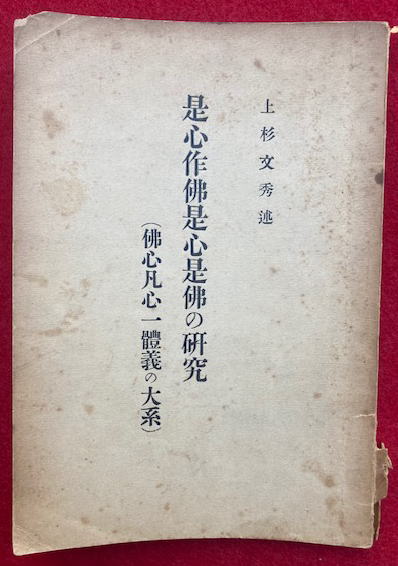 上杉文秀述
是心作佛是心是佛の研究
(佛心凡心一體義の大系)